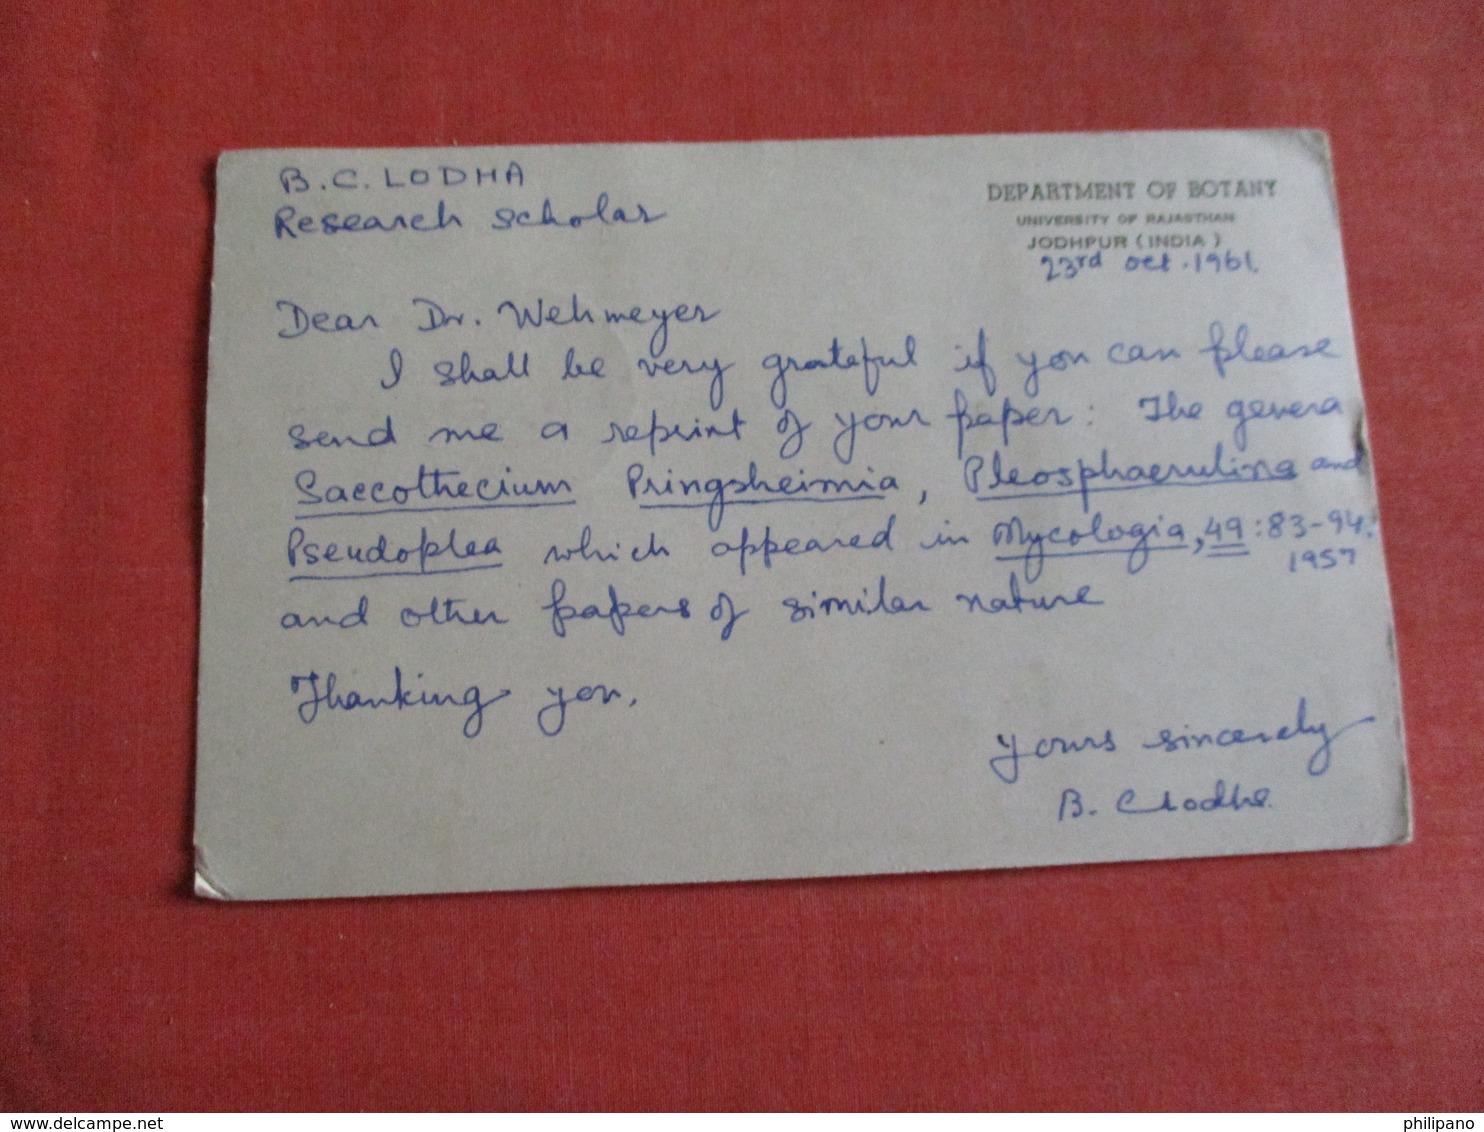 B.C. LODHA
Research scholar
DEPARTMENT OF BOTANY
UNIVERSITY OF RAJASTHAN
JODHPUR (INDIA)
23rd Oct. 1961.
Dear Dr. Wehmeyer
I shall be very grateful if you can please
send me a reprint of your paper: The genera
Saccothecium Pringsheimia, Pleosphaerulina and
Pseudoplea which appeared in Mycologia, 49:83-94.
1957
and other papers of similar nature
Thanking you,
Yours sincerely
B. C Lodha
delcampe.net
philipano